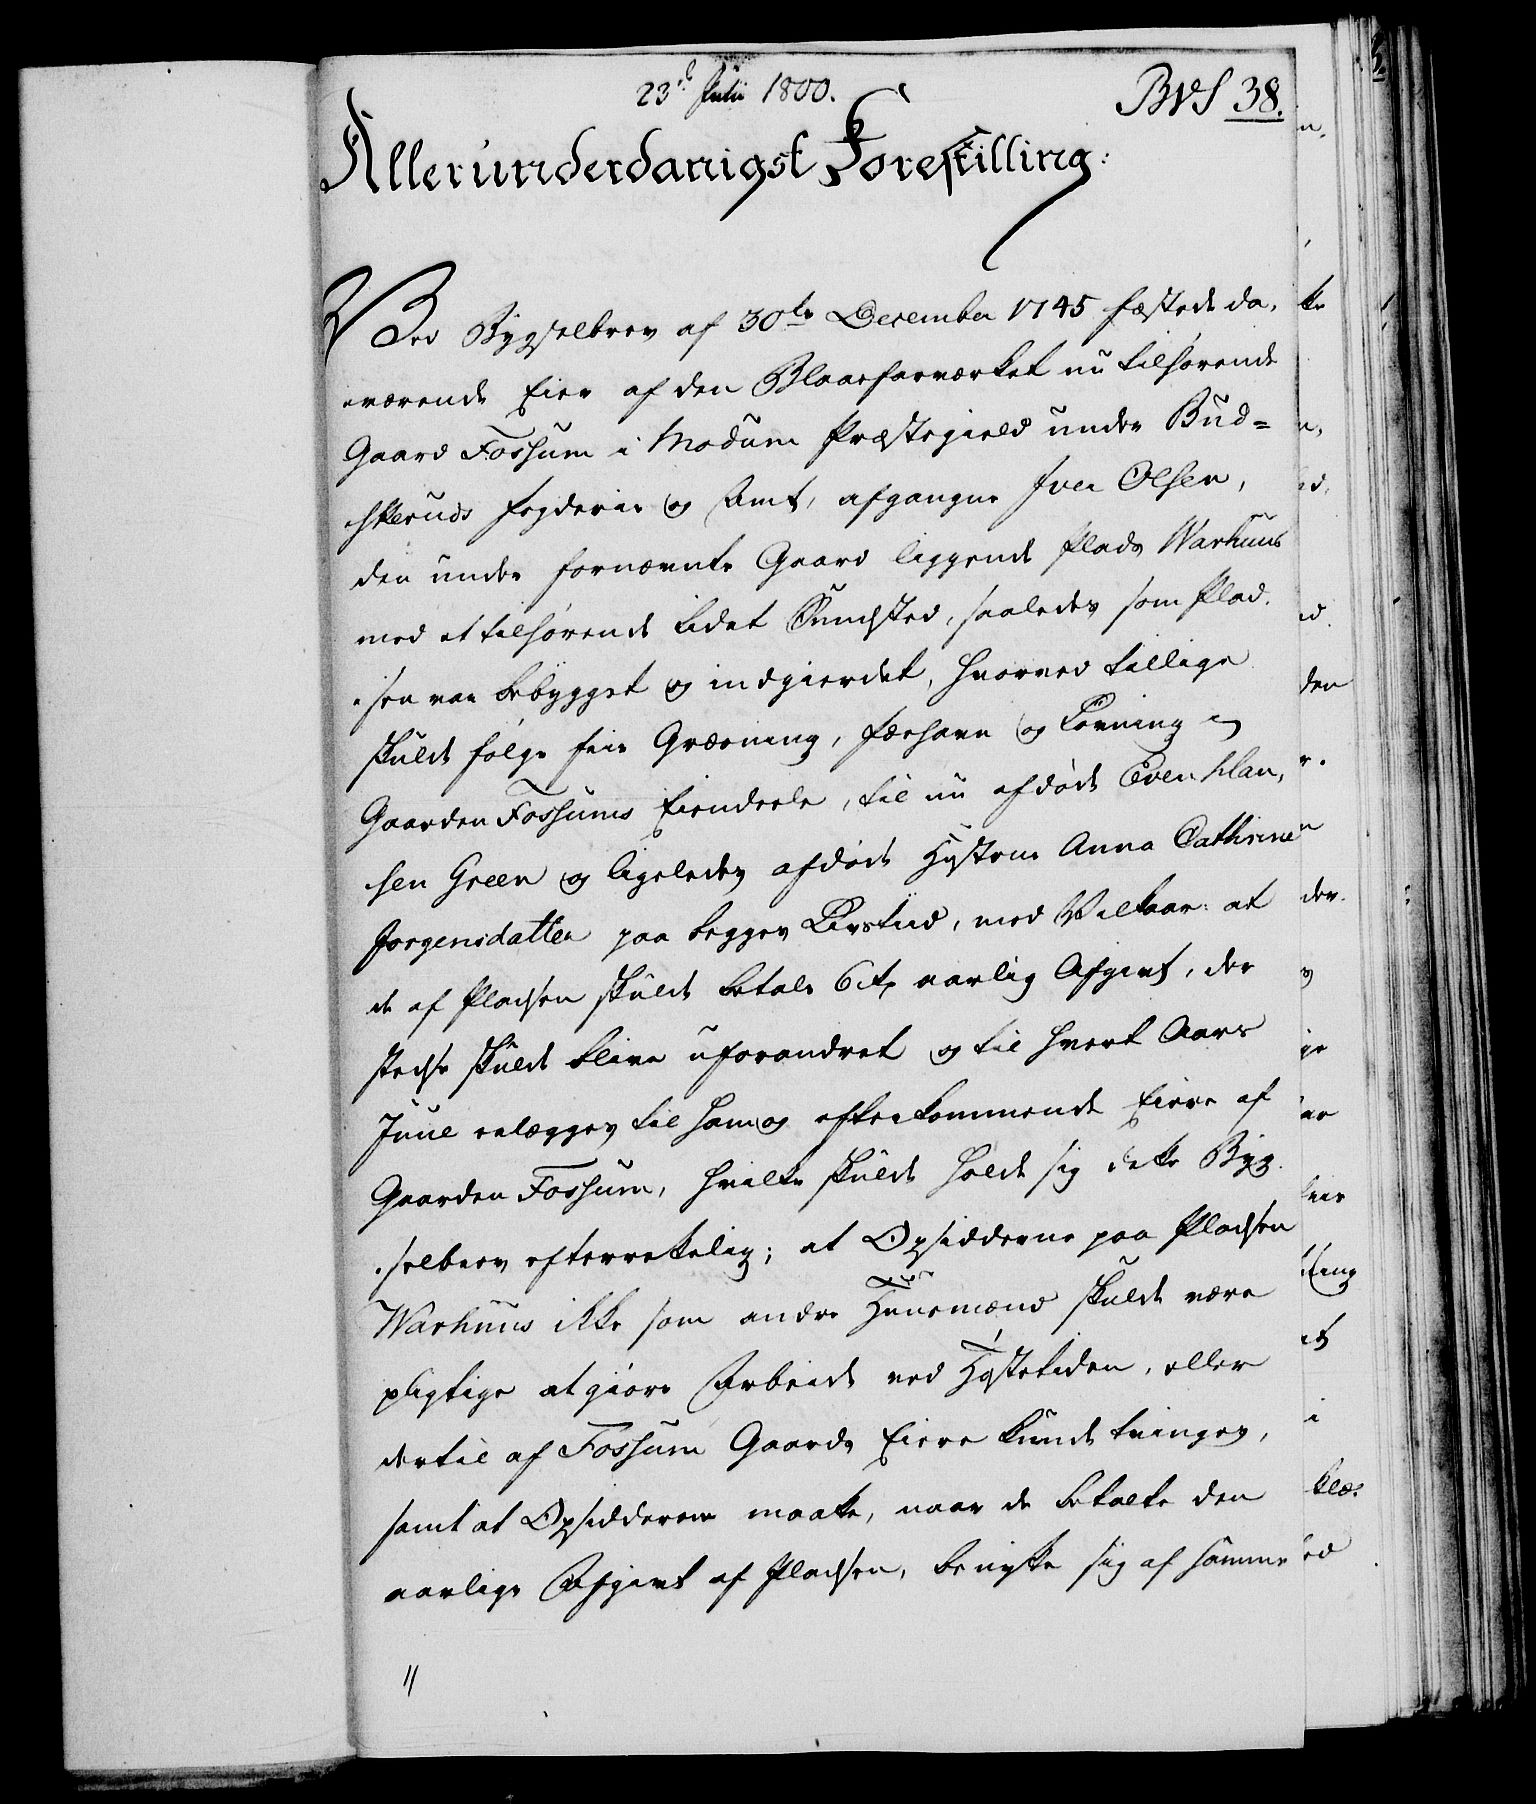 23d Julii 1800.
BVS 38.
Allerunderdanigst Forestilling:
Ved Bygselbrev af 30te December 1745 fæstede da-
værende Eier af den Blaafarveværket nu tilhørende
Gaard Fossum i Modum Præstegield under Bud=
skeruds Fogderie og Amt, afgangne Iver Olsen,
den under fornævnte Gaard liggende Plads Warhuus
med et tilhørende lidet Qvernsted, saaledes som Plad-
sen var bebygget og indgierdet, hvorved tillige
skulde følge frie Græsning, Fæehavn og Løvning i
Gaarden Fossums Eiendeele, til nu afdøde Even Han-
sen Green og ligeledes afdøde Hustrue Anna Cathrine
Jorgensdatter paa begges Livstiid, med Vilkaar: at
de af Pladsen skulde betale 6 rd aarlig Afgivt, der
stedse skulde blive uforandret og til hvert Aars
Juul erlægges til ham og efterkommende Eiere af
Gaarden Fossum, hvilke skulde holde sig dette Byg-
selbrev efterrettelig; at Opsidderne paa Pladsen
Warhuus ikke som andre Huusmænd skulde være
pligtige at giøre Arbeide ved Høstetiden, eller
dertil af Fossum Gaards Eiere kunde tvinges,
samt at Opsidderne maatte, naar de betalte den
aarlige Afgivt af Pladsen, benytte sig af samme